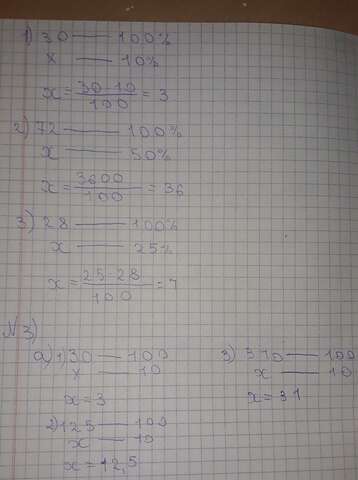 1) 30 — 100%
x — 10%
x = 30·10/100 = 3
2) 72 — 100%
x — 50%
x = 3600/100 = 36
3) 28 — 100%
x — 25%
x = 25·28/100 = 7
№3)
a) 1) 30 — 100
x — 10
x = 3
2) 125 — 100
x — 10
x = 12,5
3) 310 — 100
x — 10
x = 31